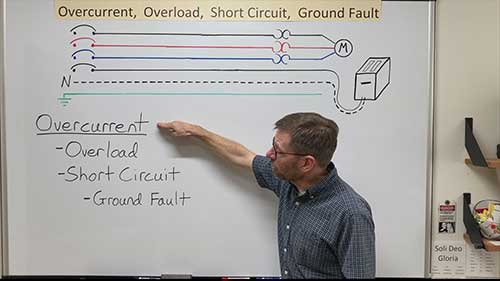 Overcurrent, Overload, Short Circuit, Ground Fault
M
N
Overcurrent
-Overload
-Short Circuit
-Ground Fault
Soli Deo
Gloria